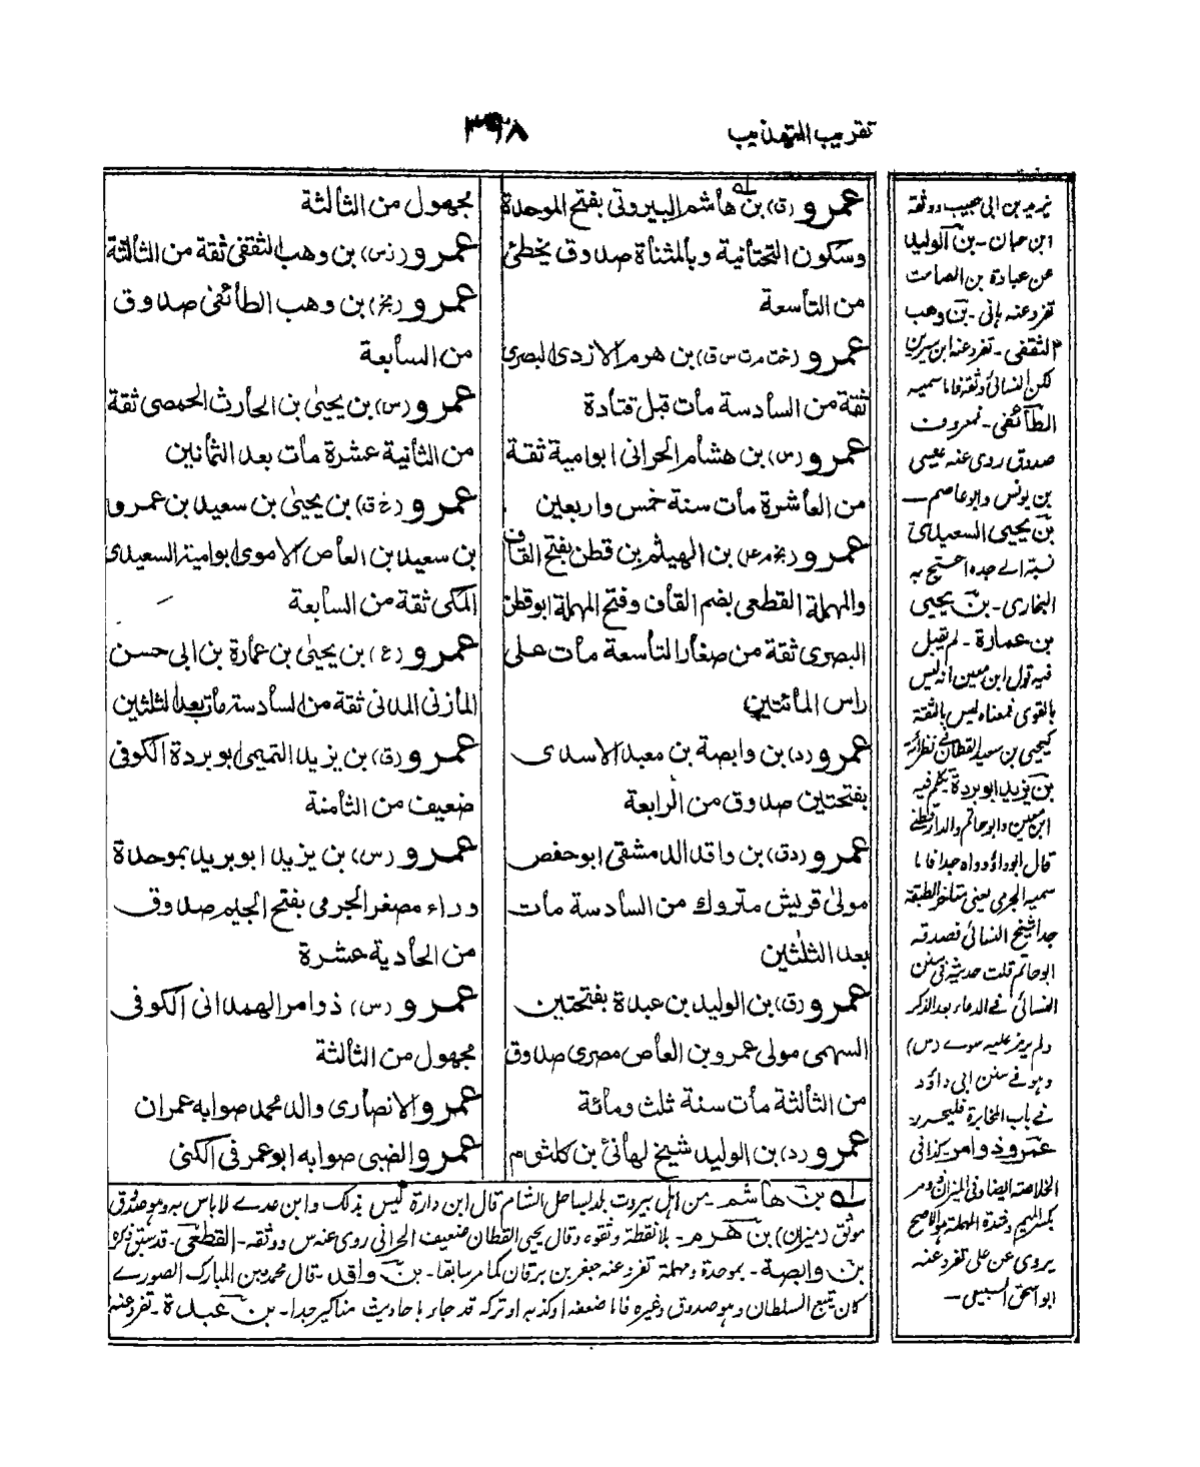 تقريب التهذيب
٣٩٨
عمرو (ق) بن هاشم البيروتى بفتح الموحدة
وسكون التحتانية وبالمثناة صدوق يخطئ
من التاسعة
عمرو (خت مت س ق) بن هرم الازدى البصرى
ثقة من السادسة مات قبل قتادة
عمرو (س) بن هشام الحرانى ابو امية ثقة
من العاشرة مات سنة خمس واربعين
عمرو (بخ م عل) بن الهيثم بن قطن بفتح القاف
والمهملة القطعى بضم القاف وفتح المهملة ابو قطن
البصرى ثقة من صغار التاسعة مات على
راس المائتين
عمرو (د) بن وابصة بن معبد الاسدى
بفتحتين صدوق من الرابعة
عمرو (دق) بن واقد الدمشقى ابو حفص
مولى قريش متروك من السادسة مات
بعد الثلثين
عمرو (ق) بن الوليد بن عبدة بفتحتين
السهمى مولى عمرو بن العاص مصرى صدوق
من الثالثة مات سنة ثلث ومائة
عمرو (د) بن الوليد شيخ لهانئ بن كلثوم
مجهول من الثالثة
عمرو (زس) بن وهب الثقفى ثقة من الثالثة
عمرو (بخ) بن وهب الطائفى صدوق
من السابعة
عمرو (س) بن يحيى بن الحارث الحمصى ثقة
من الثانية عشرة مات بعد الثمانين
عمرو (خ ق) بن يحيى بن سعيد بن عمرو
بن سعيد بن العاص الاموى ابو امية السعيدى
المكى ثقة من السابعة
عمرو (ع) بن يحيى بن عمارة بن ابى حسن
المازنى المدنى ثقة من السادسة مات بعد الثلثين
عمرو (ق) بن يزيد التميمى ابو بردة الكوفى
ضعيف من الثامنة
عمرو (س) بن يزيد ابو بريد بموحدة
وراء مصغر الجرمى بفتح الجيم صدوق
من الحادية عشرة
عمرو (س) ذو امر الهمدانى الكوفى
مجهول من الثالثة
عمرو الانصارى والد محمد صوابه عمران
عمرو الضبى صوابه ابو عمر فى الكنى
له بن هاشم - من اهل بيروت بلد بساحل الشام قال ابن دارة ليس بذلك وابن عدے لا باس به وهو صدوق
موثق (ميزان) بن هرم - بلا نقطة وثقوه وقال يحيى القطان ضعيف الحرانى روى عنه س ووثقه - القطعى - قد سبق ذكره
بن وابصة - بموحدة ومهملة تفرد عنه جعفر بن برقان كما مر سابقا - بن واقد - قال محمد بن المبارك الصورے
كان يتبع السلطان وهو صدوق وغيره فاما ضعفه او كذبه او تركه قد جاء باحاديث مناكير جدا - بن عبدة - تفرد عنه
يزيد بن ابى حبيب ووثقه
ابن حبان - بن الوليد
عن عبادة بن الصامت
تفرد عنه هانى - بن وهب
الثقفى - تفرد عنه ابن سيرين
لكن النسائى وثقه فاما سميه
الطائفى - فمعروف
صدوق روى عنه عيسى
بن يونس وابو عاصم
بن يحيى السعيدى
نسبة الے جده احتج به
البخارى - بن يحيى
بن عمارة - لم يقبل
فيه قول ابن معين انه ليس
بالقوى فمعناه ليس بالثقة
كيحيى بن سعيد القطان نظرائه
بن يزيد ابو بردة تكلم فيه
ابن معين وابو حاتم والدارقطنے
قال ابو داؤد واه جدا فاما
سميه الجرمى يعنى متاخر الطبقة
جدا شيخ النسائى فصدقه
ابو حاتم قلت حديثه فى سنن
النسائى فے الدعاء بعد الذكر
ولم يرمز عليه سوے (س)
وهو فے سنن ابى داؤد
فے باب المخابرة فليحرر
عمرو ذو امر - كذا فى
الخلاصة ايضا وفى الميزان ذو مر
بكسر الميم وشدة المهملة هو الاصح
يروى عن على تفرد عنه
ابو اسحق السبيعى -